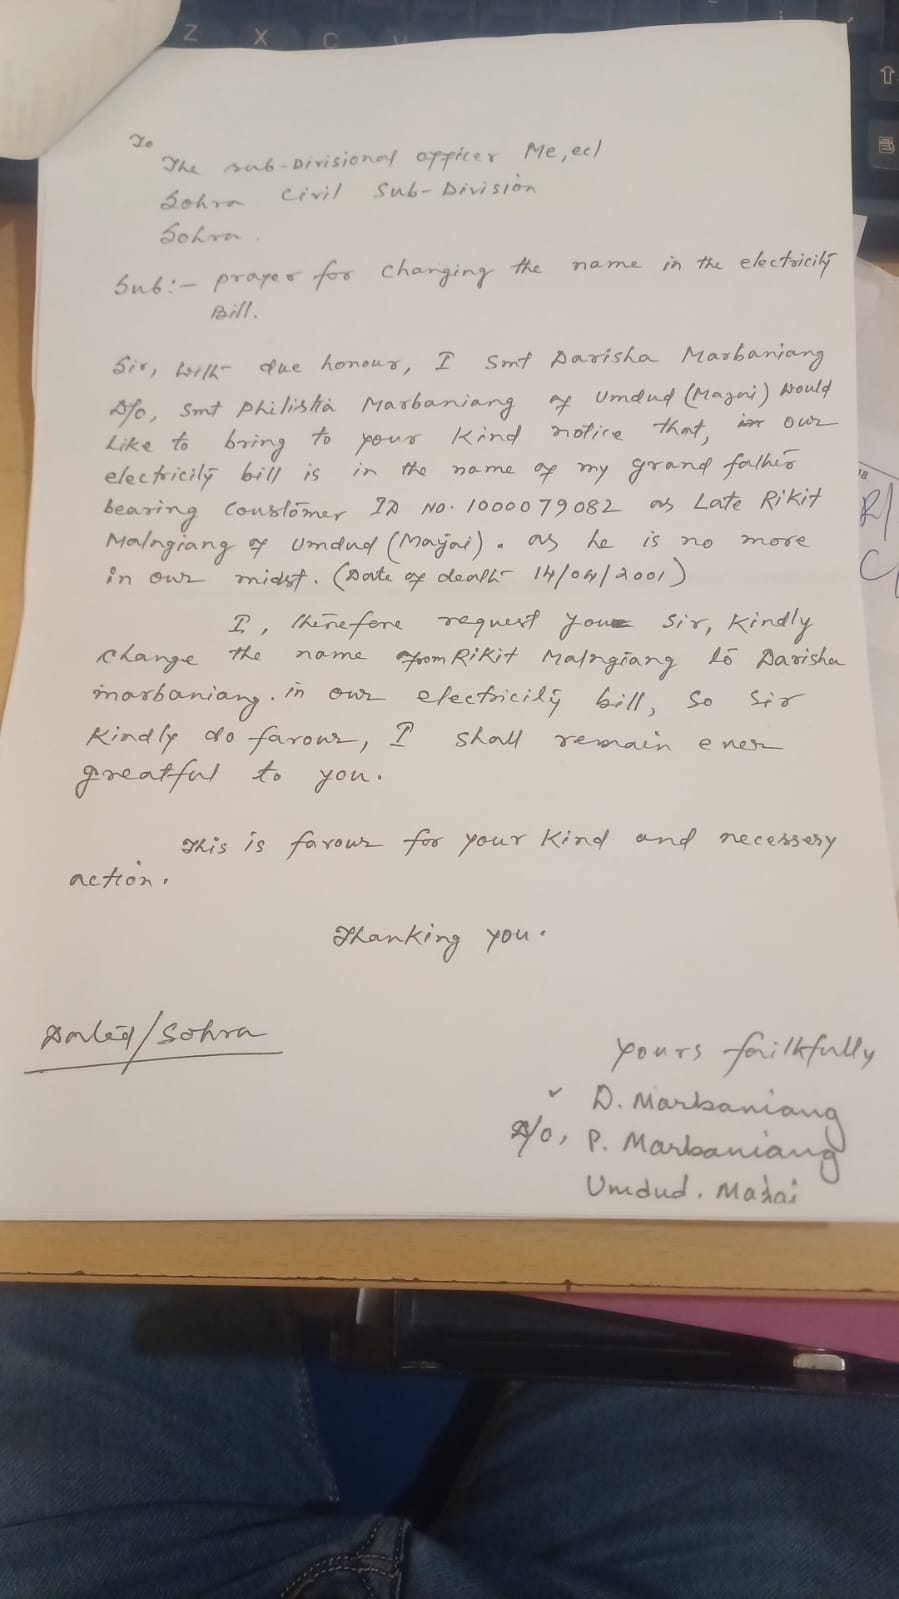 To
The sub-Divisional officer Me,ecl
Sohra Civil Sub-Division
Sohra.
Sub:- prayer for changing the name in the electricity
Bill.
Sir, with due honour, I Smt Darisha Marbaniang
D/o, Smt Philistia Marbaniang of Umdud (Mazai) would
Like to bring to your Kind notice that, our
electricity bill is in the name of my grand father
bearing Coustomer ID No. 1000079082 as Late Rikit
Malngiang of Umdud (Majai). as he is no more
in our midst. (Date of death 14/04/2001)
I, therefore request you Sir, Kindly
change the name from Rikit Malngiang to Darisha
marbaniang. in our electricity bill, So Sir
Kindly do favour, I shall remain ever
greatful to you.
This is favour for your Kind and necessery
action.
Thanking you.
Dated/Sohra
yours faithfully
D. Marbaniang
D/o, P. Marbaniang
Umdud. Mazai
Z X C V
R/
C